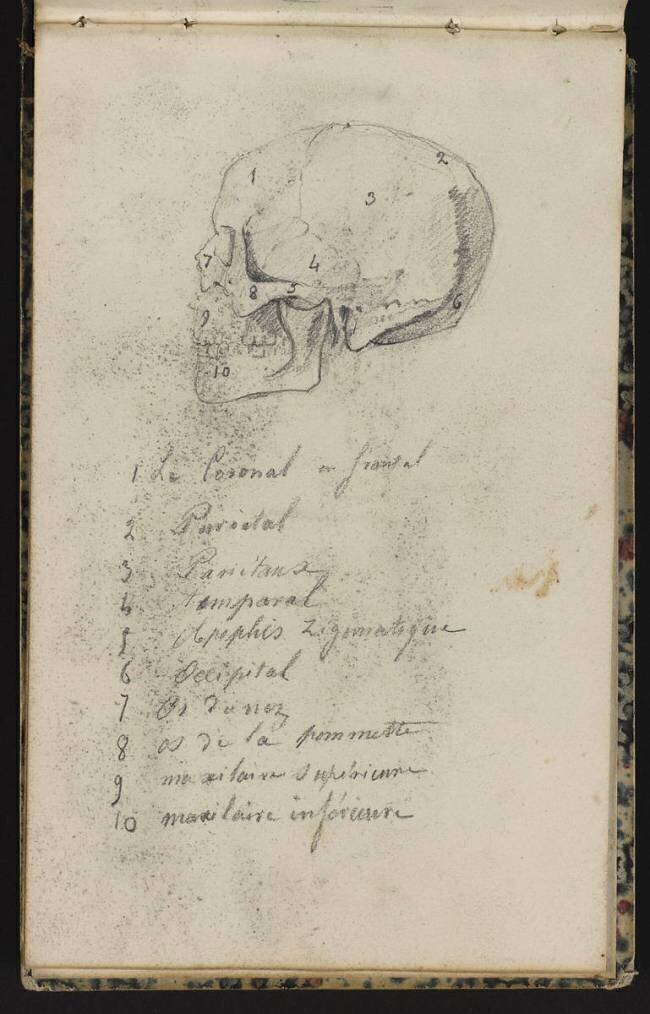 1
2
3
4
7
8
5
6
9
10
1 Le Coronal ou frontal
2 Parietal
3 Parietaux
4 temporal
5 Apophis Zigomatique
6 Occipital
7 Os du nez
8 os de la pommette
9 maxilaire supérieure
10 maxilaire inférieure